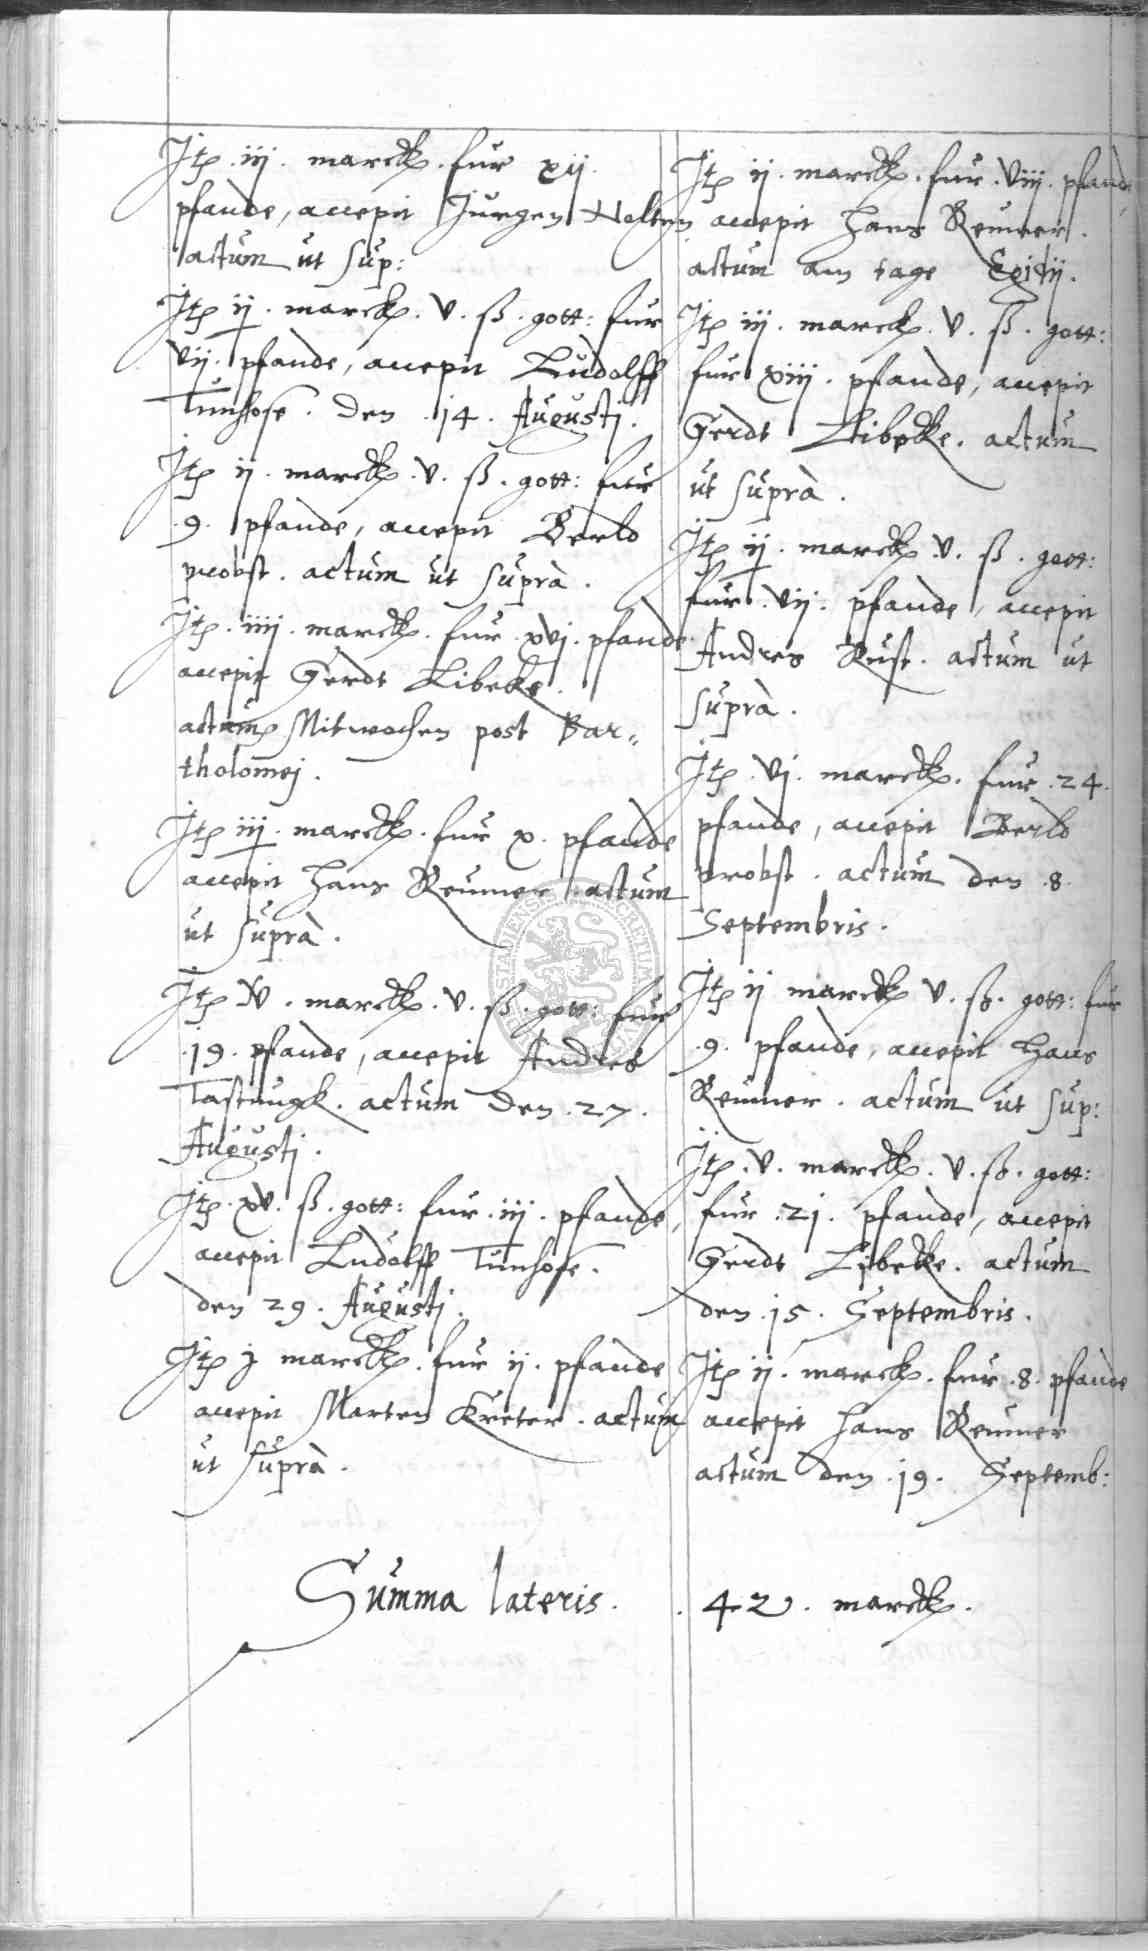 Jtem .iij. marck. fur xij.
pfande, accepit Jurgen Nolten
actum ut sup:
Jtem ij. marck. v. ß. gott: fur
vij. pfande, accepit Ludolff
Tunhose. den .14. Augusti.
Jtem ij. marck. v. ß. gott: fur
.9. pfande, accepit Berld
probst. actum ut supra.
Jtem .iiij. marck. fur .xvj. pfande
accepit Gerdt Libeke.
actum Mitwochen post Bar=
tholomej.
Jtem iij. marck. fur x. pfande
accepit Hans Reumer. actum
ut supra.
Jtem iv. marck. v. ß. gott: fur
.19. pfande, accepit Andres
Tastungk. actum den .27.
Augusti.
Jtem xv. ß. gott: fur .iij. pfande,
accepit Ludolff Tunhose.
den 29. Augusti.
Jtem j marck. fur ij. pfande
accepit Marten Kreter. actum
ut supra.
Jtem ij. marck. fur .viij. pfande,
accepit Hans Reumer.
actum am tage Egidij.
Jtem iij. marck. v. ß. gott:
fur xiij. pfande, accepit
Gerdt Libeke. actum
ut supra.
Jtem ij. marck v. ß. gott:
fur .vij. pfande, accepit
Andres Rust. actum ut
supra.
Jtem .vj. marck. fur .24.
pfande, accepit Berld
probst. actum den .8.
Septembris.
Jtem ij marck v. ß. gott: fur
.9. pfande, accepit Hans
Reumer. actum ut sup:
Jtem .v. marck. v. ß. gott:
fur .21. pfande, accepit
Gerdt Libeke. actum
den .15. Septembris.
Jtem ij. marck. fur .8. pfande
accepit Hans Reumer
actum den .19. Septemb:
Summa lateris. . 42. marck.